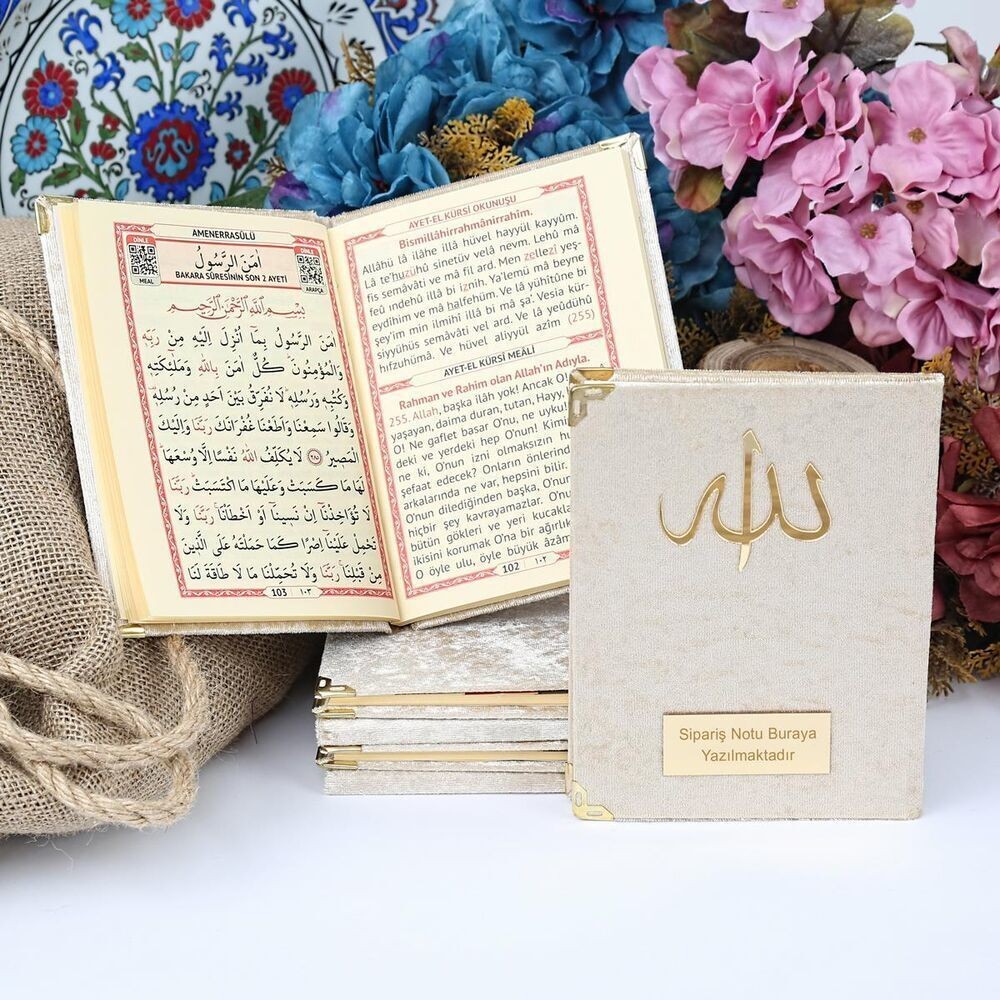 AMENERRASÛLÜ
DİNLE
MEAL
اٰمَنَ الرَّسُولُ
BAKARA SÛRESİNİN SON 2 AYETİ
DİNLE
ARAPÇA
بِسْمِ اللّٰهِ الرَّحْمٰنِ الرَّحِيمِ
اٰمَنَ الرَّسُولُ بِمَٓا اُنْزِلَ اِلَيْهِ مِنْ رَبِّه۪
وَالْمُؤْمِنُونَۜ كُلٌّ اٰمَنَ بِاللّٰهِ وَمَلٰٓئِكَتِه۪
وَكُتُبِه۪ وَرُسُلِه۪ۜ لَا نُفَرِّقُ بَيْنَ اَحَدٍ مِنْ رُسُلِه۪
وَقَالُوا سَمِعْنَا وَاَطَعْنَا غُفْرَانَكَ رَبَّنَا وَاِلَيْكَ
الْمَصِيرُ ﴿٢٨٥﴾ لَا يُكَلِّفُ اللّٰهُ نَفْسًا اِلَّا وُسْعَهَا
لَهَا مَا كَسَبَتْ وَعَلَيْهَا مَا اكْتَسَبَتْ رَبَّنَا
لَا تُؤَاخِذْنَٓا اِنْ نَس۪ينَٓا اَوْ اَخْطَأْنَا رَبَّنَا وَلَا
تَحْمِلْ عَلَيْنَٓا اِصْرًا كَمَا حَمَلْتَهُ عَلَى الَّذ۪ينَ
مِنْ قَبْلِنَا رَبَّنَا وَلَا تُحَمِّلْنَا مَا لَا طَاقَةَ لَنَا
103 ١٠٣
AYET-EL KÜRSİ OKUNUŞU
Bismillâhirrahmânirrahim.
Allâhü lâ ilâhe illâ hüvel hayyül kayyûm.
Lâ te'huzühû sinetüv velâ nevm. Lehû mâ
fis semâvâti ve mâ fil ard. Men zellezî yeş-
feû ındehû illâ bi iznih. Ya'lemü mâ beyne
eydîhim ve mâ halfehüm. Ve lâ yühîtûne bi
şey'im min ilmihî illâ bi mâ şa'. Vesia kür-
siyyühüs semâvâti vel ard. Ve lâ yeûdühû
hıfzuhümâ. Ve hüvel aliyyül azîm (255)
AYET-EL KÜRSİ MEALİ
Rahman ve Rahim olan Allah'ın Adıyla.
255. Allah, başka ilâh yok! Ancak O
yaşayan, daima duran, tutan, Hayy,
O! Ne gaflet basar O'nu, ne uyku!
deki ve yerdeki hep O'nun! Kim
ne ki, O'nun izni olmaksızın hu
şefaat edecek? Onların önlerind
arkalarında ne var, hepsini bilir.
O'nun dilediğinden başka, O'nun
hiçbir şey kavrayamazlar. O'nun
bütün gökleri ve yeri kucakla
ikisini korumak O'na bir ağırlık
O öyle ulu, öyle büyük âzâm
102 ١٠٢
الله
Sipariş Notu Buraya
Yazılmaktadır